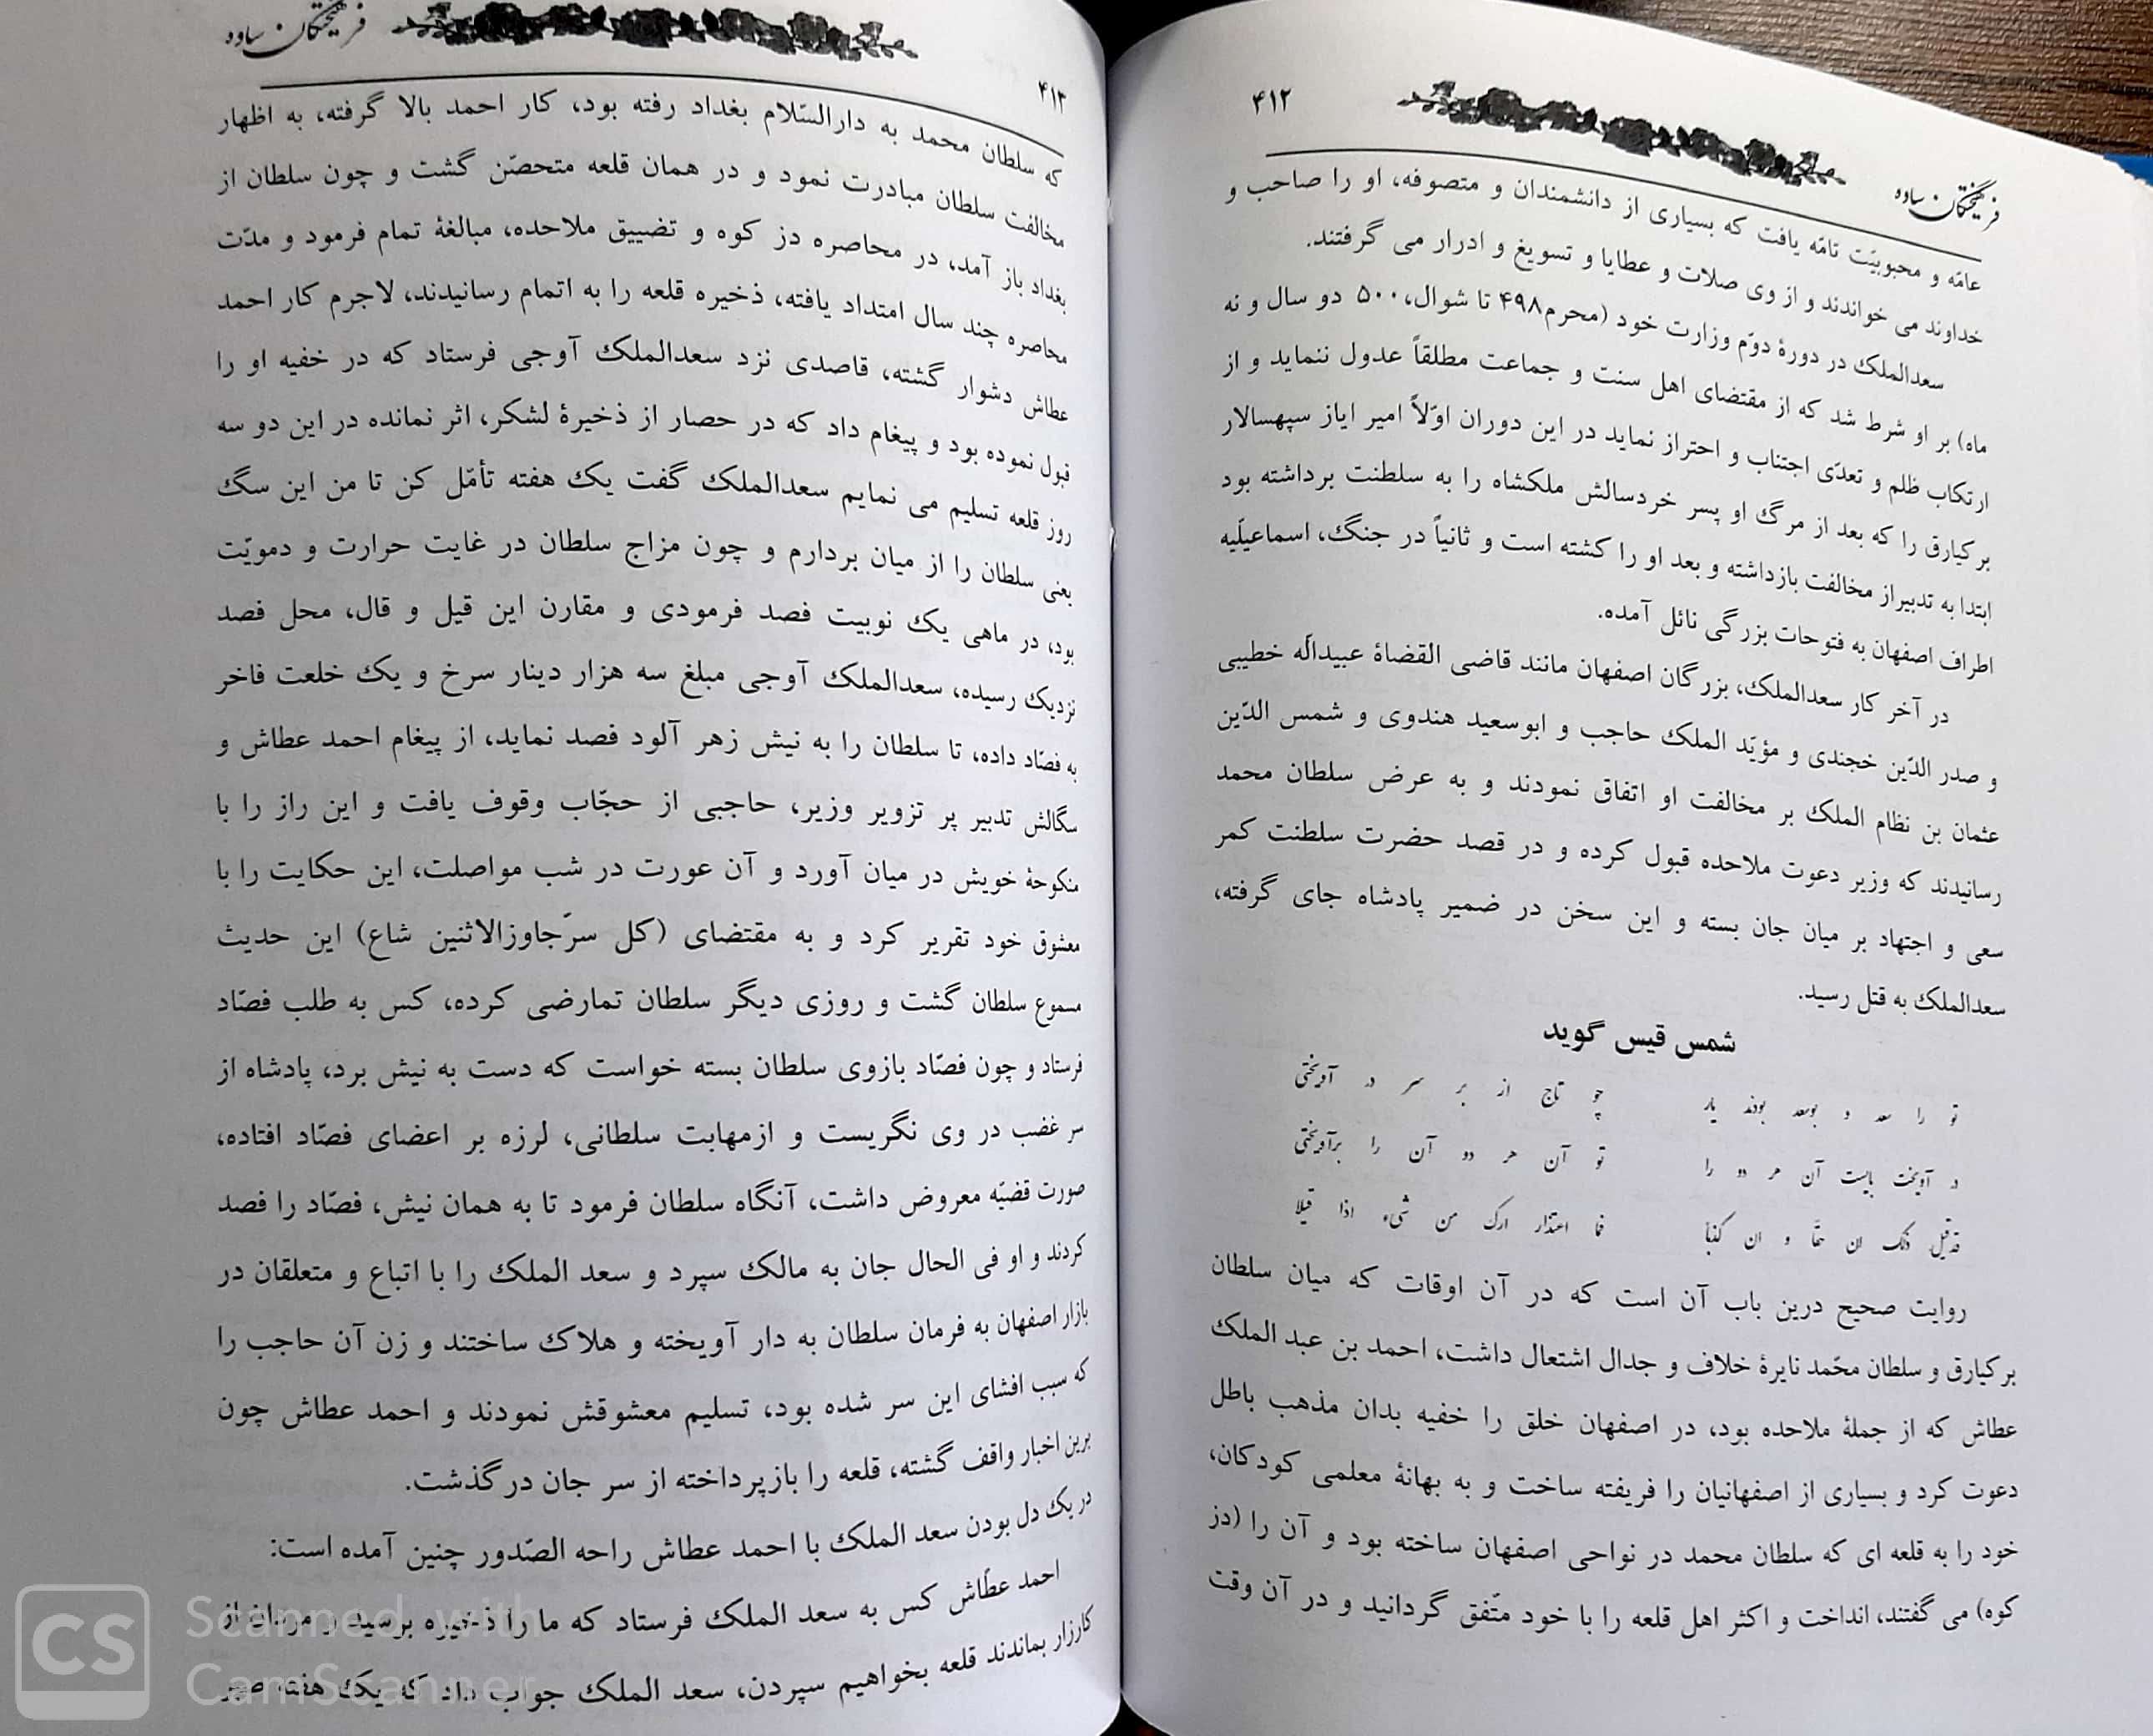 ۴۱۲
فرهیختگان ساوه
عامّه و محبوبیّت تامّه یافت که بسیاری از دانشمندان و متصوفه، او را صاحب و
خداوند می خواندند و از وی صلات و عطایا و تسویغ و ادرار می گرفتند.
سعدالملک در دورۀ دوّم وزارت خود (محرم۴۹۸ تا شوال،۵۰۰ دو سال و نه
ماه) بر او شرط شد که از مقتضای اهل سنت و جماعت مطلقاً عدول ننماید و از
ارتکاب ظلم و تعدّی اجتناب و احتراز نماید در این دوران اوّلاً امیر ایاز سپهسالار
برکیارق را که بعد از مرگ او پسر خردسالش ملکشاه را به سلطنت برداشته بود
ابتدا به تدبیراز مخالفت بازداشته و بعد او را کشته است و ثانیاً در جنگ، اسماعیلّیه
اطراف اصفهان به فتوحات بزرگی نائل آمده.
در آخر کار سعدالملک، بزرگان اصفهان مانند قاضی القضاۀ عبیداله خطیبی
و صدر الدّین خجندی و مؤیّد الملک حاجب و ابوسعید هندوی و شمس الدّین
عثمان بن نظام الملک بر مخالفت او اتفاق نمودند و به عرض سلطان محمد
رسانیدند که وزیر دعوت ملاحده قبول کرده و در قصد حضرت سلطنت کمر
سعی و اجتهاد بر میان جان بسته و این سخن در ضمیر پادشاه جای گرفته،
سعدالملک به قتل رسید.
شمس قیس گوید
تو را سعد و بوسعد بودند یار چو تاج از بر سر در آویختی
در آویخت بایست آن هر دو را تو آن هر دو آن را برآویختی
قدقیل ذلک ان حقّا و ان کذبا فما اعتذار ارک من شیء اذا قیلا
روایت صحیح درین باب آن است که در آن اوقات که میان سلطان
برکیارق و سلطان محّمد نایرۀ خلاف و جدال اشتعال داشت، احمد بن عبد الملک
عطاش که از جملۀ ملاحده بود، در اصفهان خلق را خفیه بدان مذهب باطل
دعوت کرد و بسیاری از اصفهانیان را فریفته ساخت و به بهانۀ معلمی کودکان،
خود را به قلعه ای که سلطان محمد در نواحی اصفهان ساخته بود و آن را (دز
کوه) می گفتند، انداخت و اکثر اهل قلعه را با خود متّفق گردانید و در آن وقت
فرهیختگان ساوه
۴۱۳
که سلطان محمد به دارالسّلام بغداد رفته بود، کار احمد بالا گرفته، به اظهار
مخالفت سلطان مبادرت نمود و در همان قلعه متحصّن گشت و چون سلطان از
بغداد باز آمد، در محاصره دز کوه و تضییق ملاحده، مبالغۀ تمام فرمود و مدّت
محاصره چند سال امتداد یافته، ذخیره قلعه را به اتمام رسانیدند، لاجرم کار احمد
عطاش دشوار گشته، قاصدی نزد سعدالملک آوجی فرستاد که در خفیه او را
قبول نموده بود و پیغام داد که در حصار از ذخیرۀ لشکر، اثر نمانده در این دو سه
روز قلعه تسلیم می نمایم سعدالملک گفت یک هفته تأمّل کن تا من این سگ
یعنی سلطان را از میان بردارم و چون مزاج سلطان در غایت حرارت و دمویّت
بود، در ماهی یک نوبیت فصد فرمودی و مقارن این قیل و قال، محل فصد
نزدیک رسیده، سعدالملک آوجی مبلغ سه هزار دینار سرخ و یک خلعت فاخر
به فصّاد داده، تا سلطان را به نیش زهر آلود فصد نماید، از پیغام احمد عطاش و
سگالش تدبیر پر تزویر وزیر، حاجبی از حجّاب وقوف یافت و این راز را با
منکوحۀ خویش در میان آورد و آن عورت در شب مواصلت، این حکایت را با
معشوق خود تقریر کرد و به مقتضای (کل سرّجاوزالاثنین شاع) این حدیث
مسموع سلطان گشت و روزی دیگر سلطان تمارضی کرده، کس به طلب فصّاد
فرستاد و چون فصّاد بازوی سلطان بسته خواست که دست به نیش برد، پادشاه از
سر غضب در وی نگریست و ازمهابت سلطانی، لرزه بر اعضای فصّاد افتاده،
صورت قضیّه معروض داشت، آنگاه سلطان فرمود تا به همان نیش، فصّاد را فصد
کردند و او فی الحال جان به مالک سپرد و سعد الملک را با اتباع و متعلقان در
بازار اصفهان به فرمان سلطان به دار آویخته و هلاک ساختند و زن آن حاجب را
که سبب افشای این سر شده بود، تسلیم معشوقش نمودند و احمد عطاش چون
برین اخبار واقف گشته، قلعه را بازپرداخته از سر جان درگذشت.
در یک دل بودن سعد الملک با احمد عطاش راحه الصّدور چنین آمده است:
احمد عطّاش کس به سعد الملک فرستاد که ما را ذخیره برسید و مردان از
کارزار بماندند قلعه بخواهیم سپردن، سعد الملک جواب داد که یک هفته صبر
CS Scanned with
CamScanner